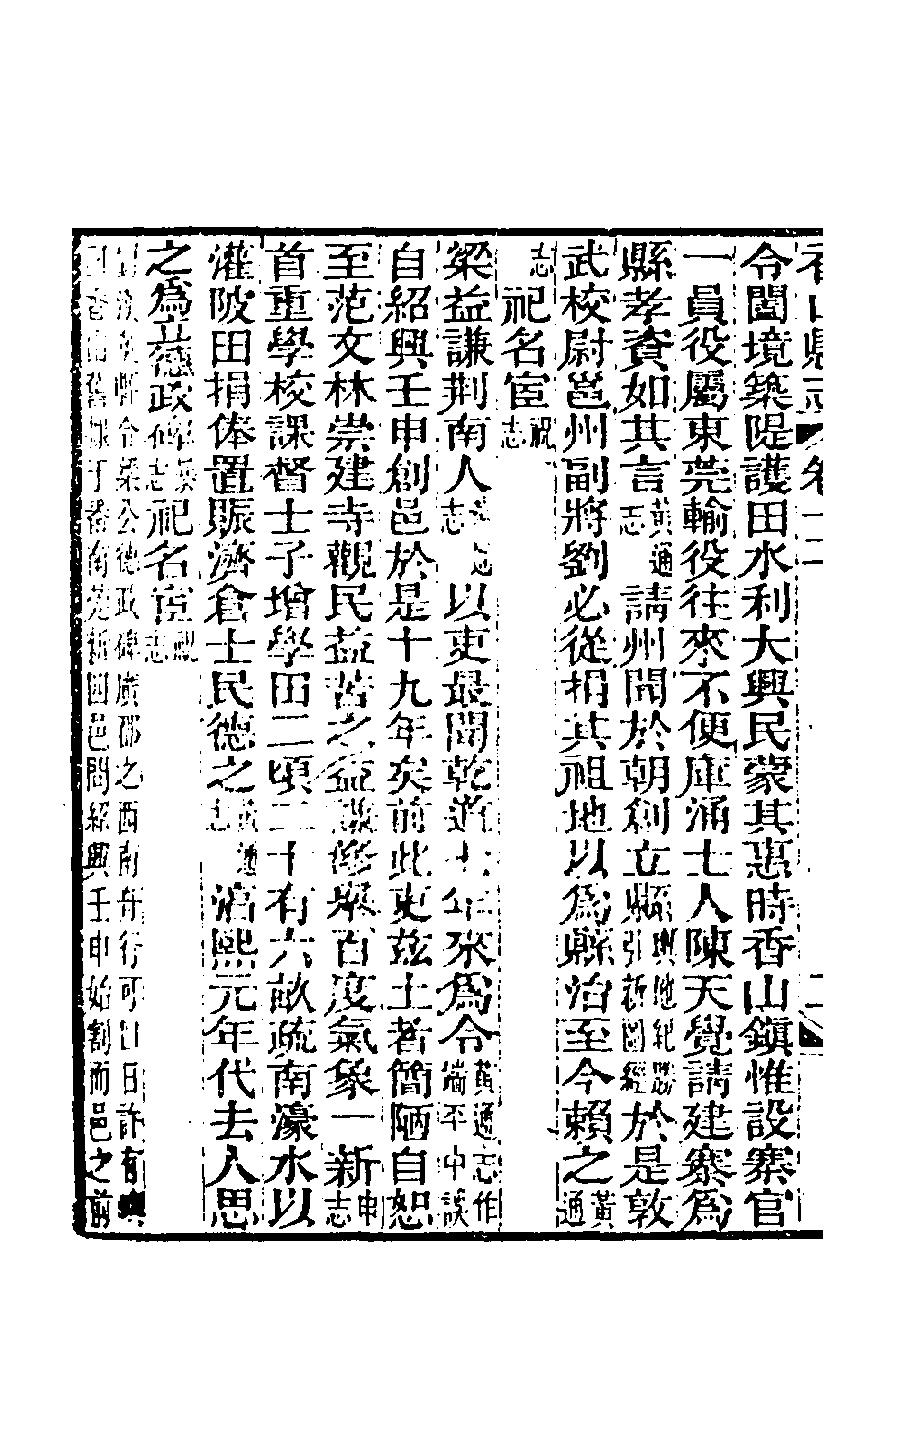 香山縣志 卷十二
令闔境築隄護田水利大興民蒙其惠時香山鎮惟設寨官
一員役屬東莞輸役往來不便庫涌士人陳天覺請建寨為
縣孝資如其言黃通志請州聞於朝創立縣輿地紀勝引新圖經於是敦
武校尉邕州副將劉必從捐其祖地以為縣治至今賴之黃通
志祀名宦祝志
梁益謙荆南人志以吏最聞乾道七年來為令黃通志作端平中誤
自紹興壬申創邑於是十九年矣前此吏茲土者簡陋自恕
至范文林崇建寺觀民益苦之益謙修舉百度氣象一新申志
首重學校課督士子增學田二頃二十有六畝疏南濠水以
灌陂田捐俸置賑濟倉士民德之黃通志湻熙元年代去人思
之為立德政碑志祀名宦祝志
令梁公德政碑廣郡之西南舟行可日許有
香山舊隸于番南莞新四邑間紹興壬申始割而邑之前